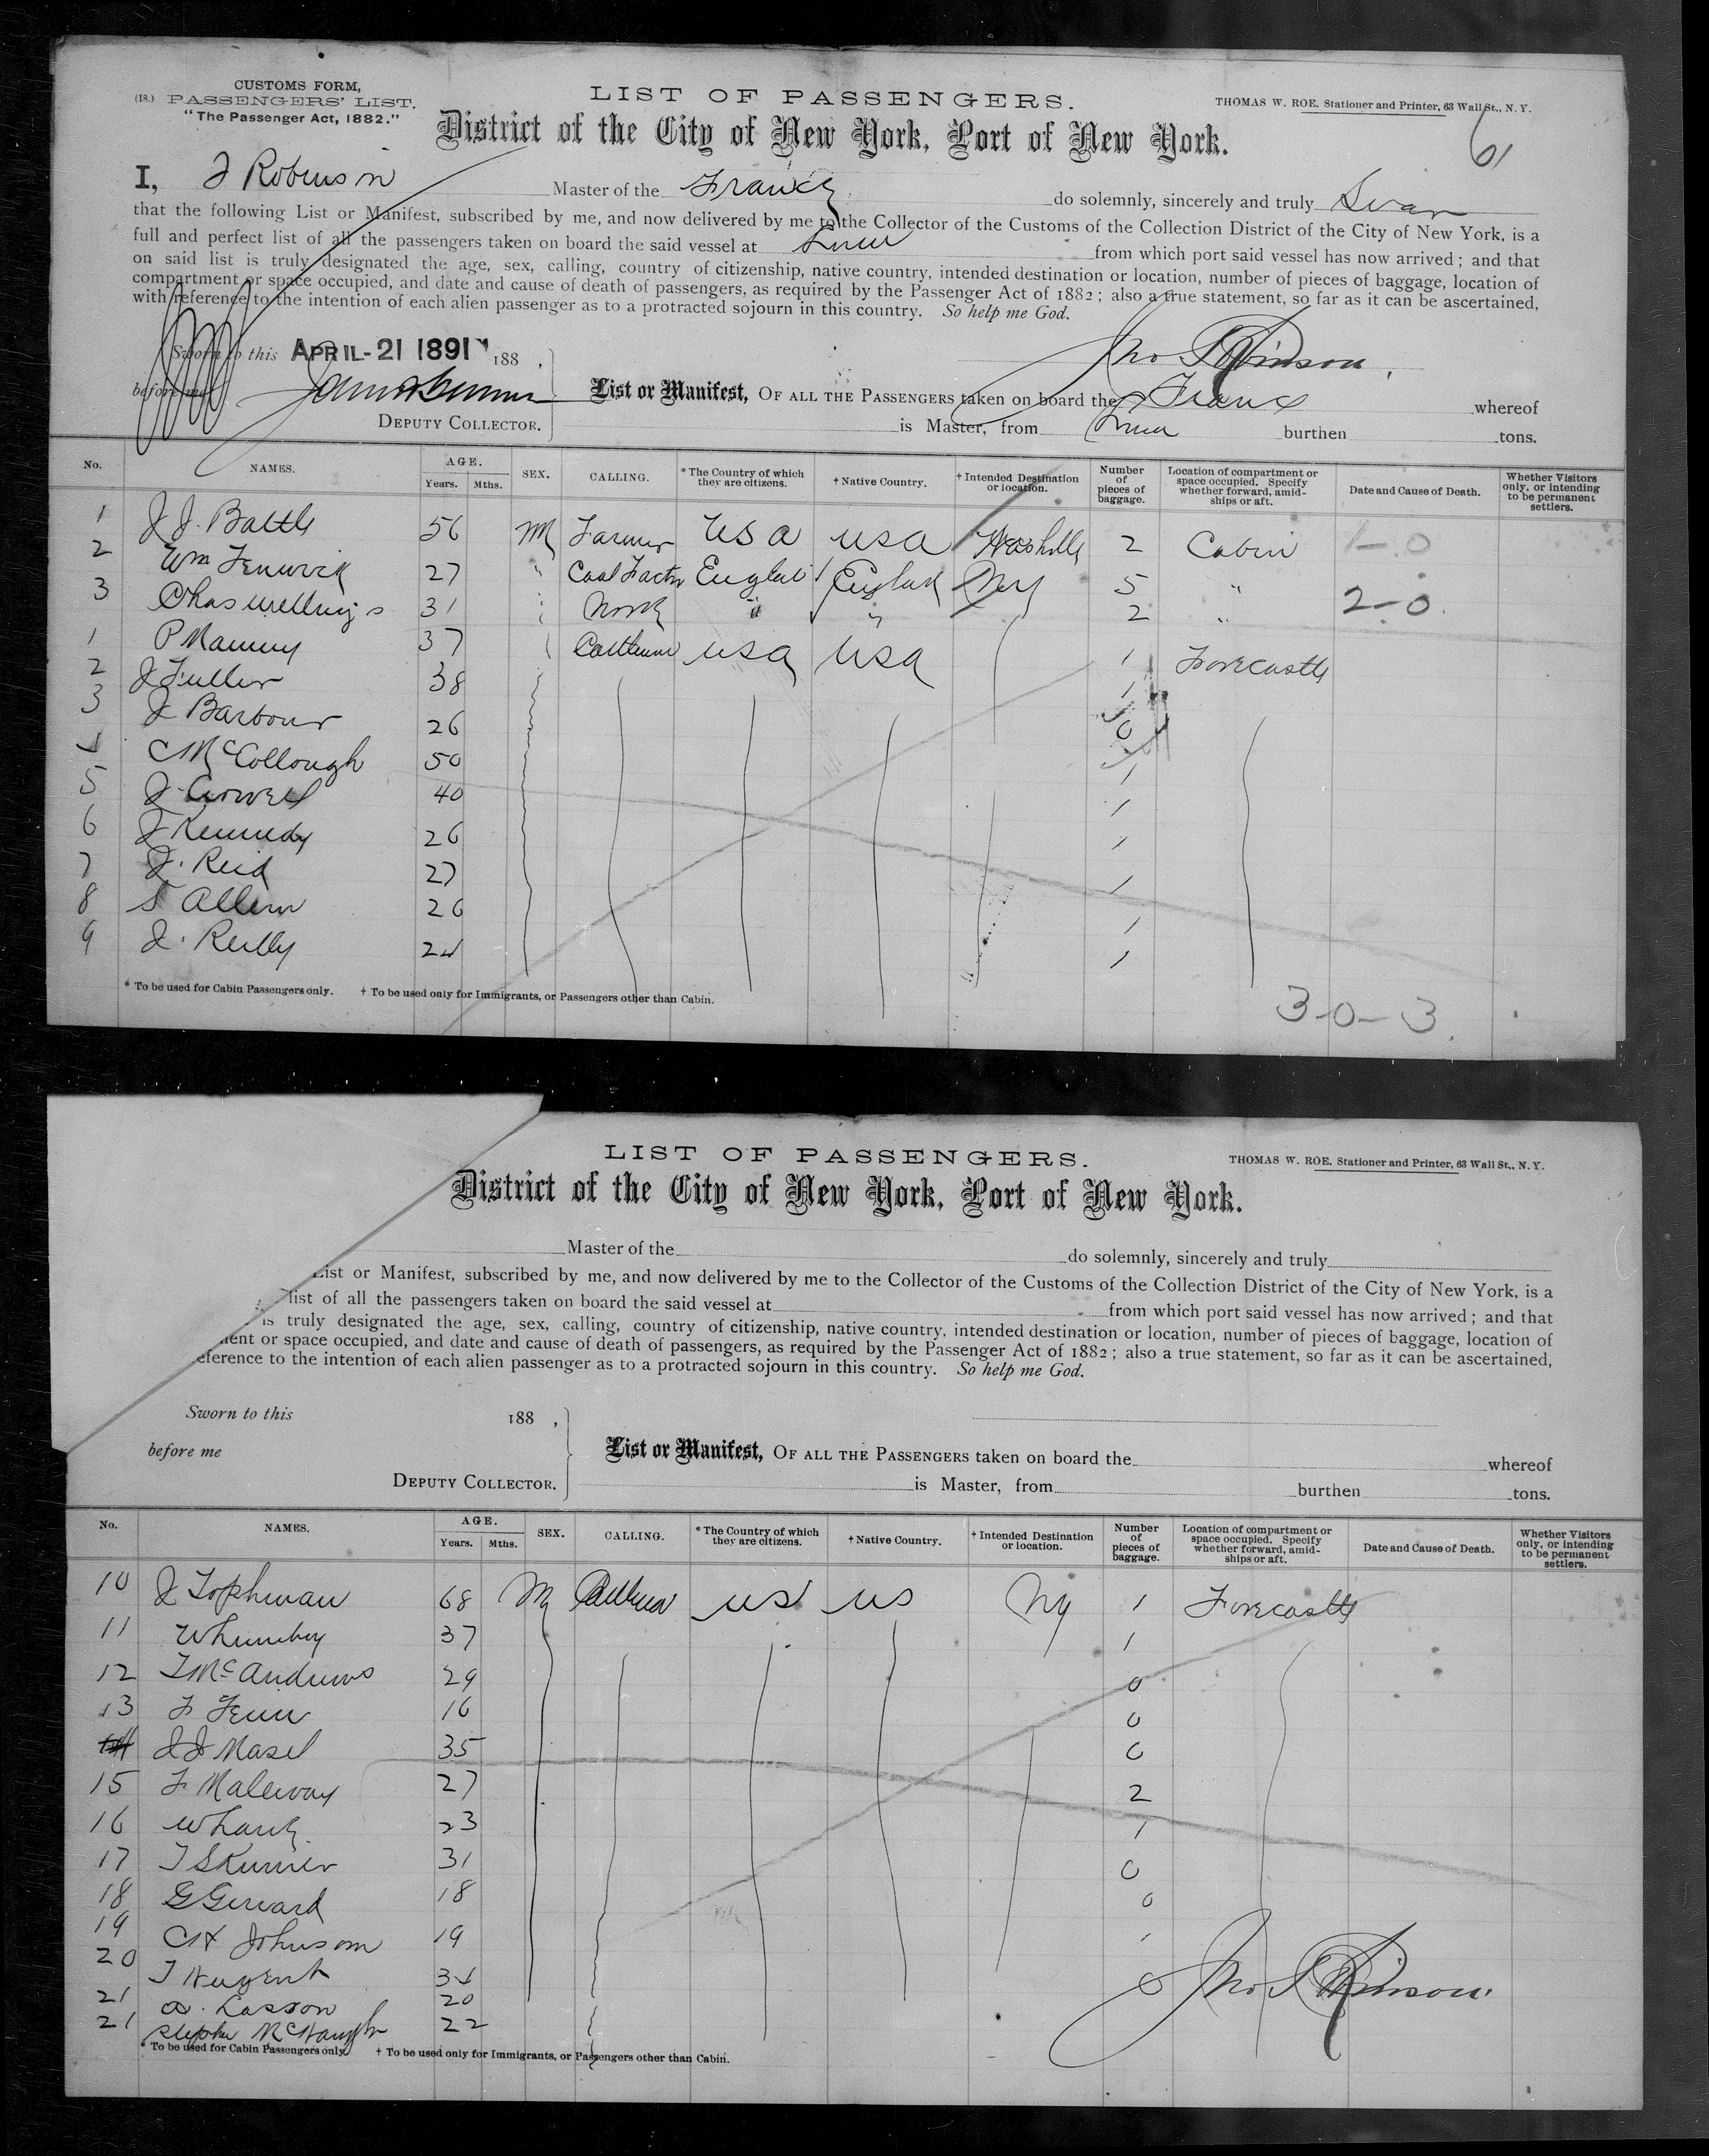 CUSTOMS FORM,
(18.) PASSENGERS' LIST.
"The Passenger Act, 1882."
LIST OF PASSENGERS.
THOMAS W. ROE. Stationer and Printer, 63 Wall St., N. Y.
District of the City of New York, Port of New York.
61
I, J Robinson Master of the France do solemnly, sincerely and truly Swear
that the following List or Manifest, subscribed by me, and now delivered by me to the Collector of the Customs of the Collection District of the City of New York, is a
full and perfect list of all the passengers taken on board the said vessel at from which port said vessel has now arrived; and that
on said list is truly designated the age, sex, calling, country of citizenship, native country, intended destination or location, number of pieces of baggage, location of
compartment or space occupied, and date and cause of death of passengers, as required by the Passenger Act of 1882; also a true statement, so far as it can be ascertained,
with reference to the intention of each alien passenger as to a protracted sojourn in this country. So help me God.
Sworn to this APRIL-21 1891 188 ,
Jno Robinson
before me
List or Manifest, OF ALL THE PASSENGERS taken on board the France whereof
DEPUTY COLLECTOR.
is Master, from burthen tons.
No. NAMES. AGE. Years. Mths. SEX. CALLING. * The Country of which they are citizens. † Native Country. † Intended Destination or location. Number of pieces of baggage. Location of compartment or space occupied. Specify whether forward, amidships or aft. Date and Cause of Death. Whether Visitors only, or intending to be permanent settlers.
1 J J. Battle 56 M Farmer USA USA 2 Cabin 1-0
2 Wm Fenwick 27 " Coal Factor England England NY 5 "
3 Chas 31 " " " 2 " 2-0
1 P 37 Cattleman USA USA 1 Forecastle
2 J Fuller 38 1
3 J Barbour 26 0
4 C McCollough 50 1
5 J. 40 1
6 J Kennedy 26 1
7 J. Reid 27 1
8 S Allen 26 1
9 J. Reilly 24 1
* To be used for Cabin Passengers only. † To be used only for Immigrants, or Passengers other than Cabin.
3-0-3
LIST OF PASSENGERS.
THOMAS W. ROE. Stationer and Printer, 63 Wall St., N. Y.
District of the City of New York, Port of New York.
Master of the do solemnly, sincerely and truly
List or Manifest, subscribed by me, and now delivered by me to the Collector of the Customs of the Collection District of the City of New York, is a
list of all the passengers taken on board the said vessel at from which port said vessel has now arrived; and that
is truly designated the age, sex, calling, country of citizenship, native country, intended destination or location, number of pieces of baggage, location of
ment or space occupied, and date and cause of death of passengers, as required by the Passenger Act of 1882; also a true statement, so far as it can be ascertained,
eference to the intention of each alien passenger as to a protracted sojourn in this country. So help me God.
Sworn to this 188 ,
before me
List or Manifest, OF ALL THE PASSENGERS taken on board the whereof
DEPUTY COLLECTOR.
is Master, from burthen tons.
No. NAMES. AGE. Years. Mths. SEX. CALLING. * The Country of which they are citizens. † Native Country. † Intended Destination or location. Number of pieces of baggage. Location of compartment or space occupied. Specify whether forward, amidships or aft. Date and Cause of Death. Whether Visitors only, or intending to be permanent settlers.
10 J Tophman 68 M Cattleman US US NY 1 Forecastle
11 37 1
12 T McAndrews 29 0
13 F Fenn 16 0
J J Masel 35 0
15 F 27 2
16 23 1
17 T Skinner 31 0
18 G Gerrard 18 0
19 C H Johnson 19 1
20 T Nugent 34 0 Jno Robinson
21 A. Lasson 20
21 Stephen 22
* To be used for Cabin Passengers only. † To be used only for Immigrants, or Passengers other than Cabin.